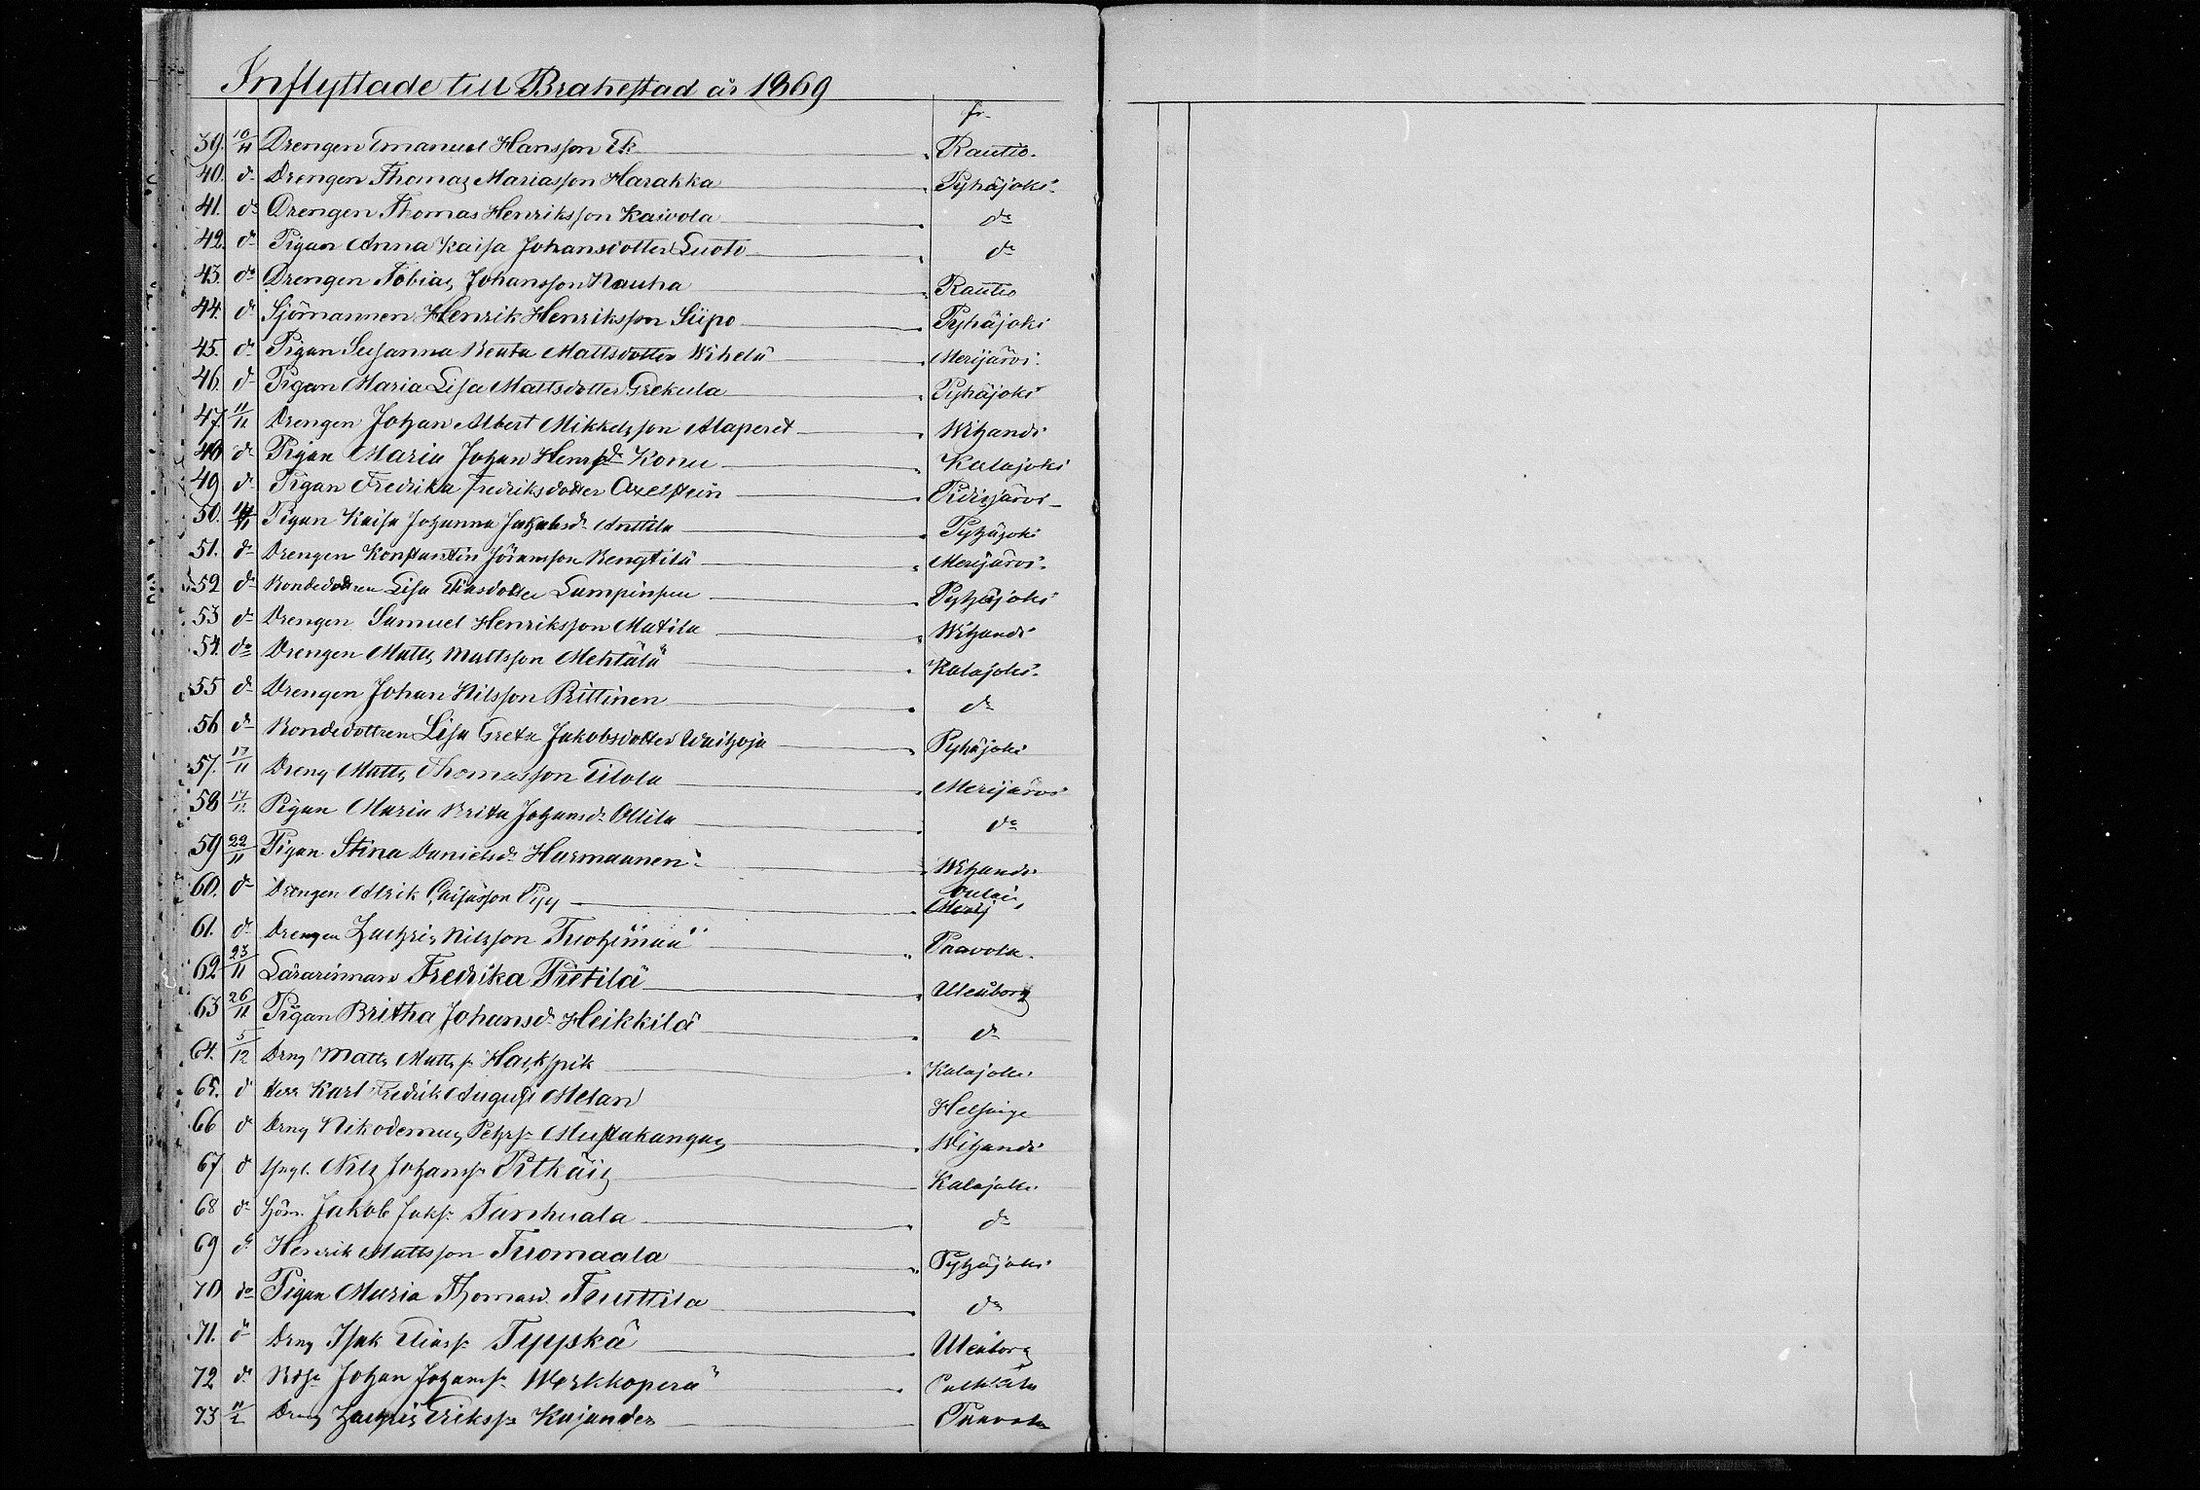 Inflyttade till Brahestad år 1869
fr.
39. 10/11 Drengen Emanuel Hansson Ek Rautio.
40. do Drengen Thomas Mariasson Harakka Pyhäjoki.
41. do Drengen Thomas Henriksson Kaivola do
42. do Pigan Anna Kaisa Johansdotter Luoto do
43. do Drengen Tobias Johansson Rauha Rautio
44. do Sjömannen Henrik Henriksson Siipo Pyhäjoki
45. do Pigan Susanna Beata Mattsdotter Wihelä Merijärvi.
46. do Pigan Maria Lisa Mattsdotter Grekula Pyhäjoki
47. 11/11 Drengen Johan Albert Mikkelsson Alaperet Wihandi
48. do Pigan Maria Johan Henrsdr Konu Kalajoki
49 do Pigan Fredrika Fredriksdotter Axelstein Pidisjärvi
50. 14/11 Pigan Kaisa Johanna Jakobsdr Anttila Pyhäjoki
51. do Drengen Konstantin Jöransson Bengtilä Merijärvi.
52 do Bondedottren Lisa Eliasdotter Lumpinpuu Pyhäjoki
53 do Drengen Samuel Henriksson Matila Wihandi
54. do Drengen Matts Mattsson Mehtälä Kalajoki.
55 do Drengen Johan Nilsson Prittinen do
56 do Bondedottren Lisa Greta Jakobsdotter Waihoja Pyhäjoki
57. 17/11 Dreng Matts Thomasson Tilola Merijärvi
58 17/11 Pigan Maria Brita Johansdr Ollila do
59 22/11 Pigan Stina Danielsdr Harmaanen Wihandi
60. do Drengen Alrik Caisasson Pyy Oulais Merij
61. do Drengen Zachris Nilsson Tuohimaa Paavola.
62 23/11 Lärarinnan Fredrika Pietilä Uleåborg
63 26/11 Pigan Britha Johansdr Heikkilä do
64. 5/12 Drng Matts Mattss. Haskspik Kalajoki
65. do Herr Karl Fredrik August Melan Helsinge
66 do Drng Nikodemus Pehrs. Mustakangas Wihandi
67 do Yngl. Nils Johanss. Pitkäis Kalajoki
68 do Sjöm. Jakob Jaks. Tanhuala do
69 do Henrik Mattsson Tuomaala Pyhäjoki
70 do Pigan Maria Thomasd. Truttila do
71. do Drng Isak Eliass. Typpskä Uleåborg
72 do Bdsn Johan Johanss. Werkkoperä Pulkkila
73 11/2 Drng Zachris Erikss. Kajander Paavola